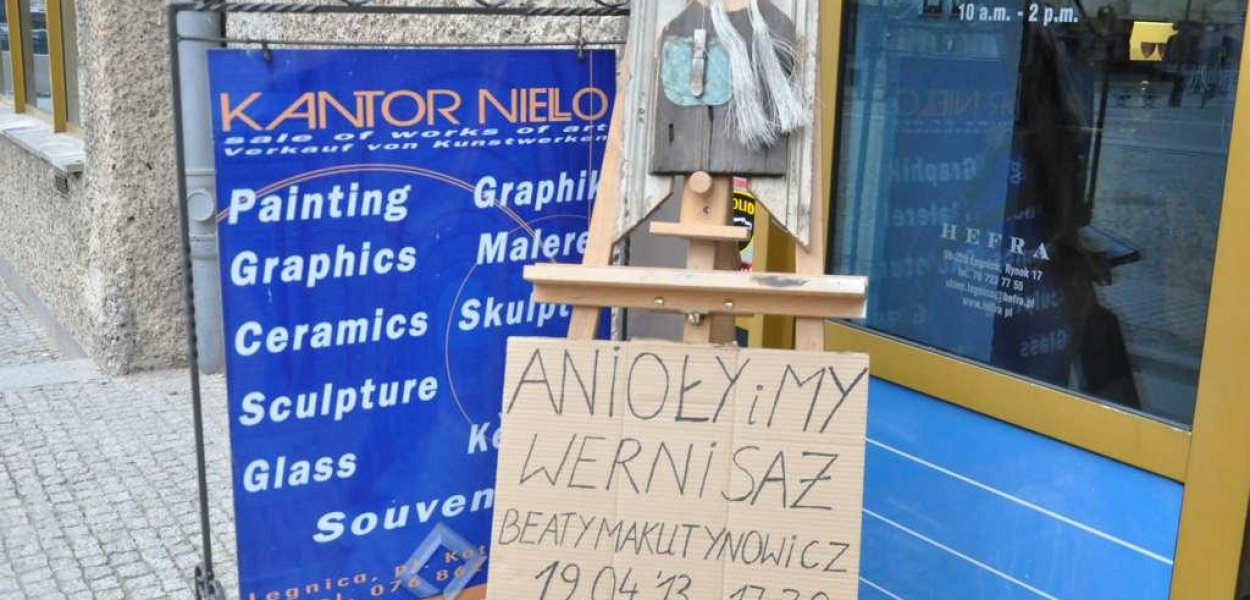 KANTOR NIELLO
sale of works of art
verkauf von Kunstwerken
Painting
Graphics
Ceramics
Sculpture
Glass
Souven
Graphik
Malere
Skulpt
Ke
Legnica, pl.
ANIOŁY i MY
WERNISAŻ
BEATY MAKUTYNOWICZ
19.04.'13 17.30
10 a.m. - 2 p.m.
HEFRA
Legnica, Rynek 17
tel. 76 723 77 55
sklep.legnica@hefra.pl
www.hefra.pl
OLID